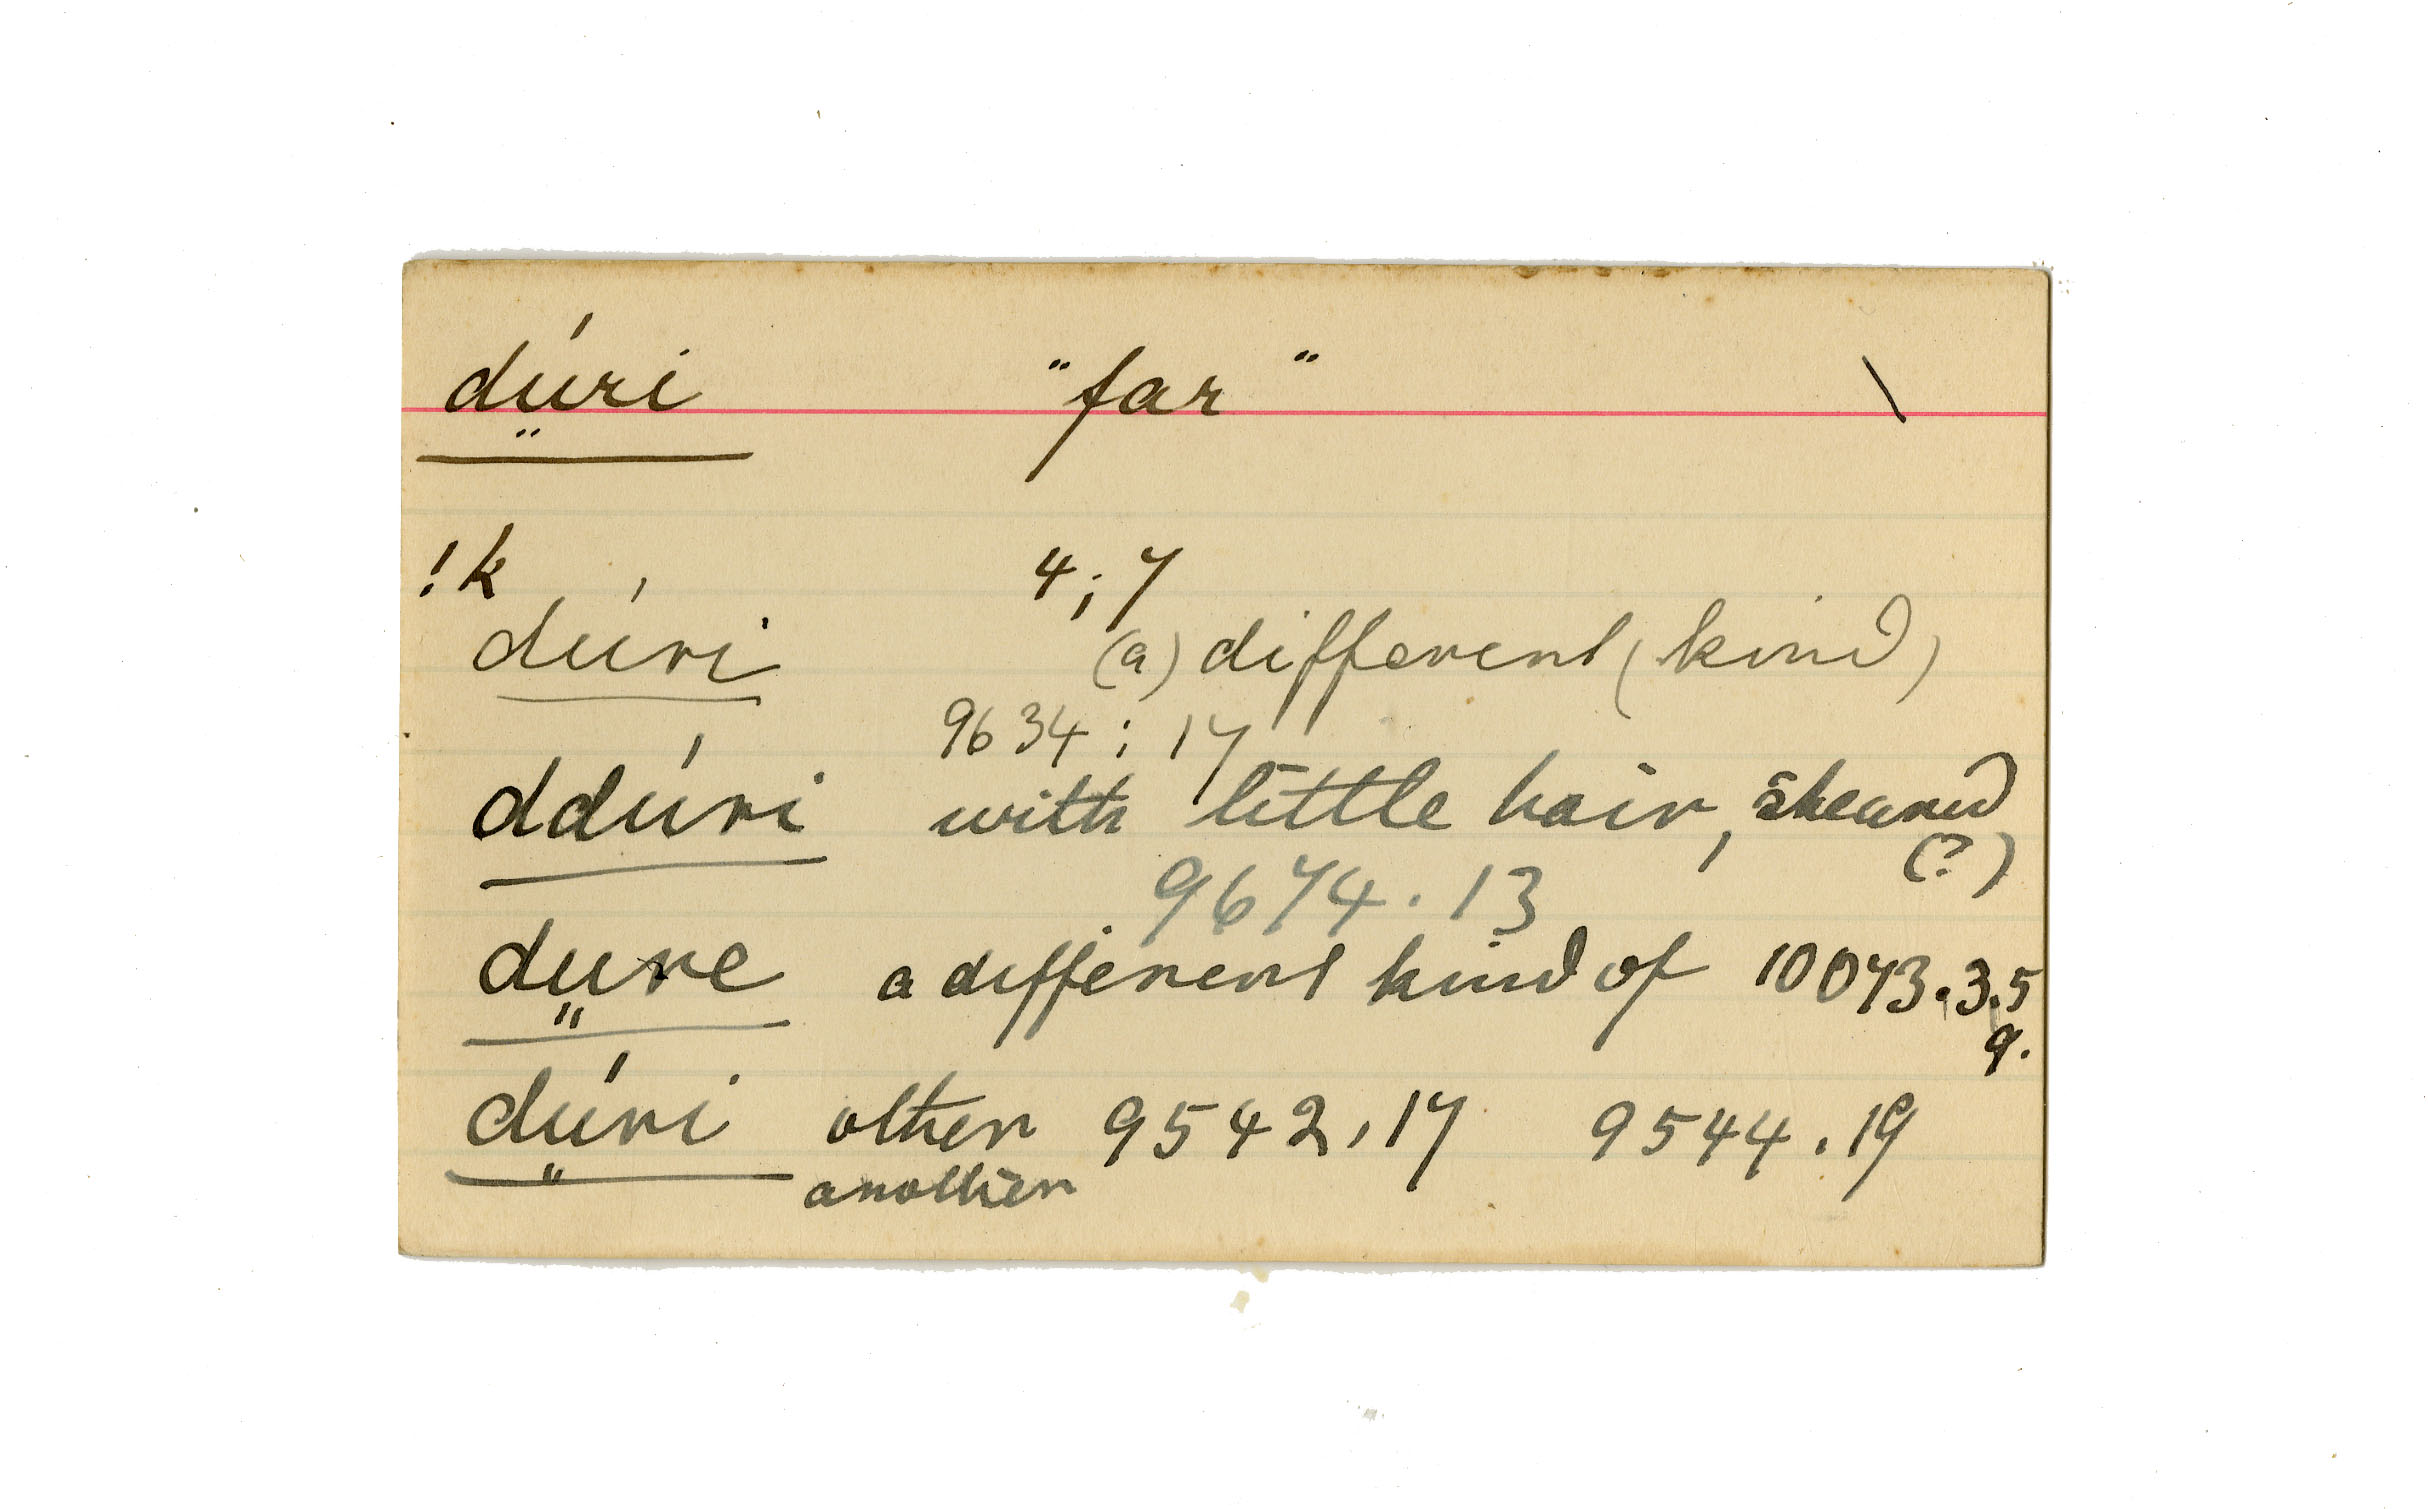 dṳ́ri "far" \
!k 4;7
dúri (a) different (kind)
9634; 17
ddúri with little hair, sheared
(?)
9674.13
dṳre a different kind of 10073.3.5
9.
dṳ́ri other 9542,17 9544.19
another